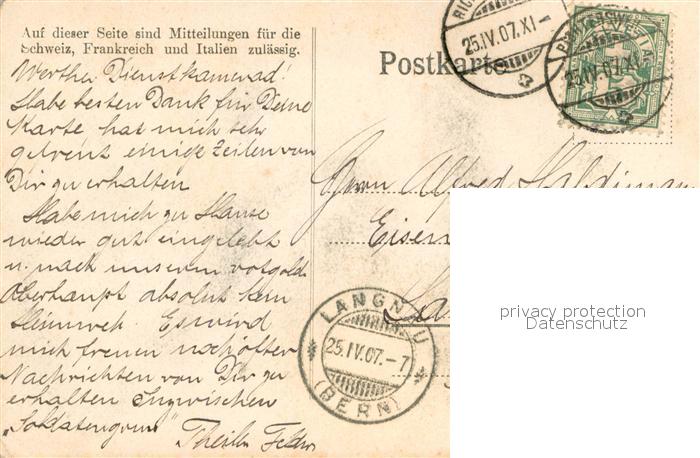 Auf dieser Seite sind Mitteilungen für die
Schweiz, Frankreich und Italien zulässig.
Postkarte
25.IV.07.XI-
25.IV.07.XI
Werther Dienstkamerad!
Habe besten Dank für Deine
Karte, hat mich sehr
gefreut einige Zeilen von
Dir zu erhalten
Habe mich zu Hause
wieder gut eingelebt
u. nach unserem
Oberhaupt absolut kein
Heimweh. Es wird
mich freuen noch öfter
Nachrichten von Dir zu
erhalten Inzwischen
"Soldatengruss"
Herrn Alfred
LANGNAU
25.IV.07.-7
(BERN)
privacy protection
Datenschutz